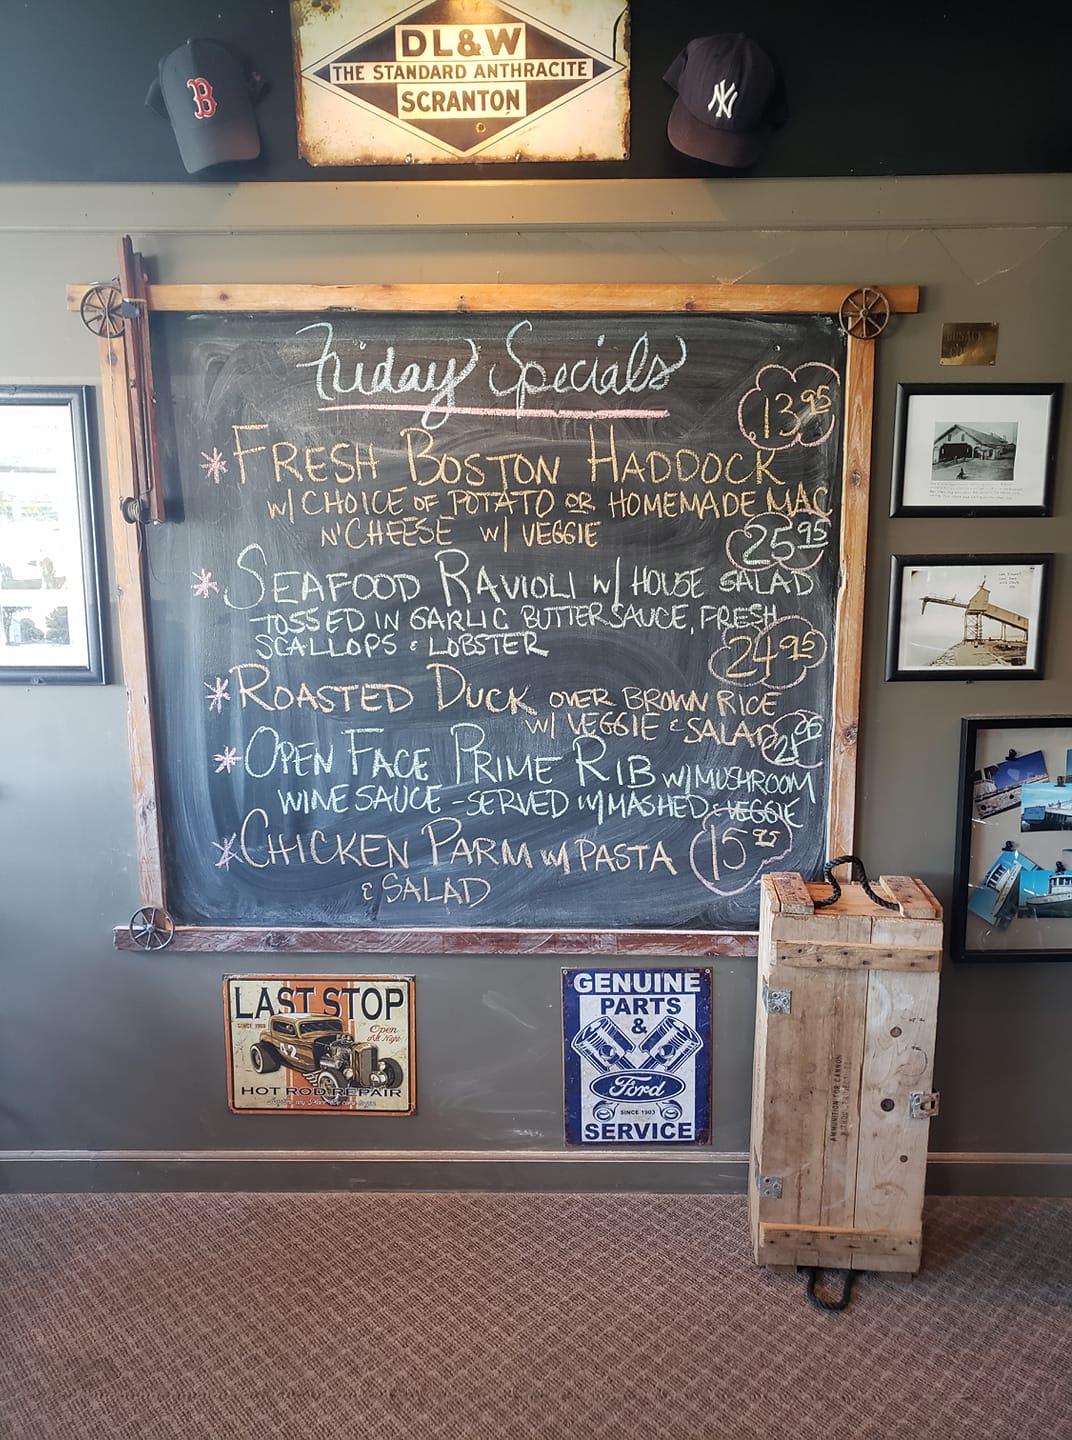 DL&W
THE STANDARD ANTHRACITE
SCRANTON
B
NY
Friday Specials
13 95
* FRESH BOSTON HADDOCK
W/ CHOICE OF POTATO OR HOMEMADE MAC
N' CHEESE W/ VEGGIE
25 95
* SEAFOOD RAVIOLI W/ HOUSE SALAD
TOSSED IN GARLIC BUTTER SAUCE, FRESH
SCALLOPS & LOBSTER
24 95
* ROASTED DUCK OVER BROWN RICE
W/ VEGGIE & SALAD
95
* OPEN FACE PRIME RIB W/ MUSHROOM
WINE SAUCE - SERVED W/ MASHED & VEGGIE
* CHICKEN PARM W/ PASTA
15 95
& SALAD
LAST STOP
SINCE 1969
Open
All Night
42
HOT ROD REPAIR
GENUINE
PARTS
&
Ford
SINCE 1903
SERVICE
AMMUNITION FOR CANNON